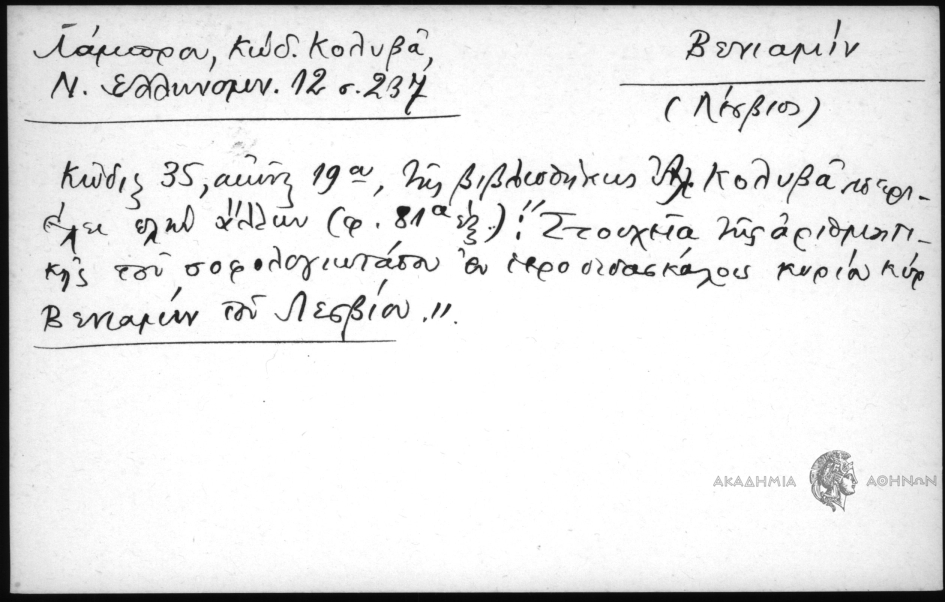 Λάμπρου, Κώδ. Κολυβᾶ,
Ν. Ἑλληνομν. 12 σ. 237
Βενιαμίν
(Λέσβιος)
Κῶδιξ 35, αἰῶν. 19ου, τῆς βιβλιοθήκης Ἀλ. Κολυβᾶ περι-
έχει πλὴν ἄλλων (φ. 81α ἑξ.): "Στοιχεῖα τῆς ἀριθμητι-
κῆς τοῦ σοφολογιωτάτου ἐν ἱεροδιδασκάλοις κυρίου κὺρ
Βενιαμὶν τοῦ Λεσβίου."
ΑΚΑΔΗΜΙΑ ΑΘΗΝΩΝ